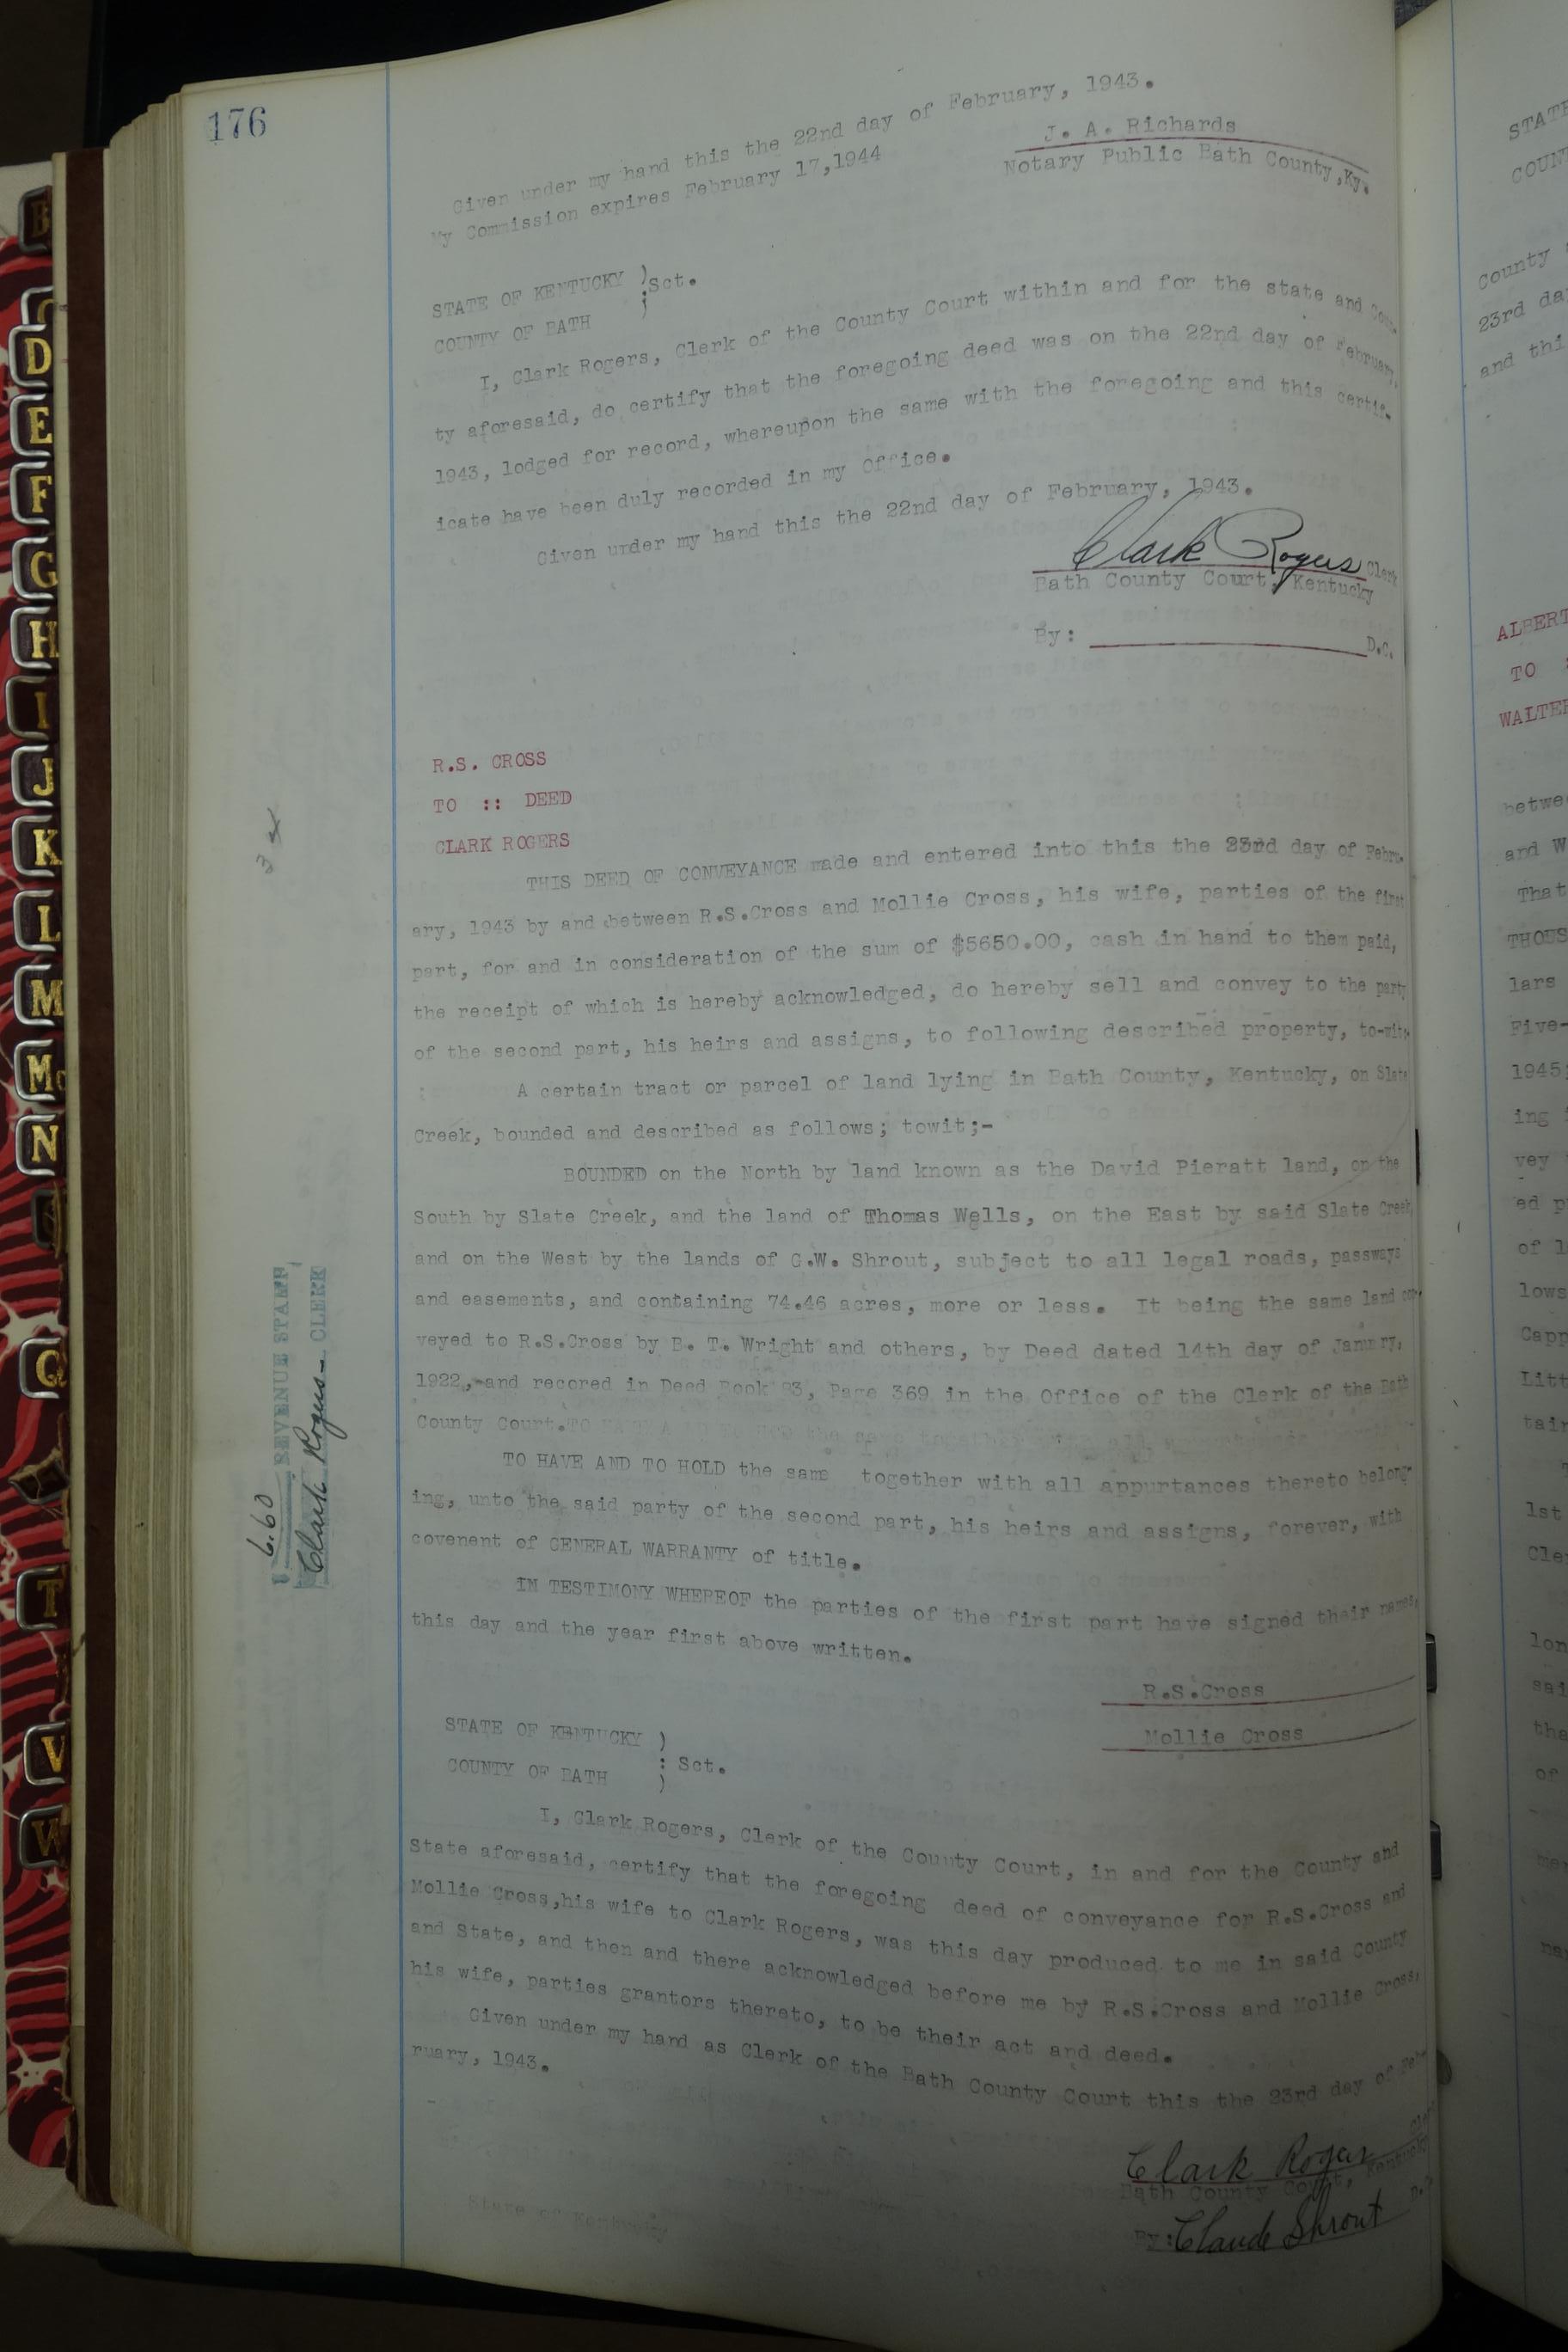 176
Given under my hand this the 22nd day of February, 1943.
My Commission expires February 17,1944
J. A. Richards
Notary Public Bath County,Ky.
STATE OF KENTUCKY ) :Sct.
COUNTY OF BATH )
I, Clark Rogers, Clerk of the County Court within and for the state and Coun-
ty aforesaid, do certify that the foregoing deed was on the 22nd day of February,
1943, lodged for record, whereupon the same with the foregoing and this certif-
icate have been duly recorded in my office.
Given under my hand this the 22nd day of February, 1943.
Clark Rogers Clerk
Bath County Court, Kentucky
By: D.C.
R.S. CROSS
TO :: DEED
CLARK ROGERS
THIS DEED OF CONVEYANCE made and entered into this the 23rd day of Febru-
ary, 1943 by and between R.S.Cross and Mollie Cross, his wife, parties of the first
part, for and in consideration of the sum of $5650.00, cash in hand to them paid,
the receipt of which is hereby acknowledged, do hereby sell and convey to the party
of the second part, his heirs and assigns, to following described property, to-wit:
A certain tract or parcel of land lying in Bath County, Kentucky, on Slate
Creek, bounded and described as follows; towit;-
BOUNDED on the North by land known as the David Pieratt land, on the
South by Slate Creek, and the land of Thomas Wells, on the East by said Slate Creek
and on the West by the lands of C.W. Shrout, subject to all legal roads, passways
and easements, and containing 74.46 acres, more or less. It being the same land con-
veyed to R.S.Cross by B. T. Wright and others, by Deed dated 14th day of January,
1922,-and recored in Deed Book 83, Page 369 in the Office of the Clerk of the Bath
County Court.
TO HAVE AND TO HOLD the same together with all appurtances thereto belong-
ing, unto the said party of the second part, his heirs and assigns, forever, with
covenent of GENERAL WARRANTY of title.
IN TESTIMONY WHEREOF the parties of the first part have signed their names,
this day and the year first above written.
R.S.Cross
Mollie Cross
STATE OF KENTUCKY )
: Sct.
COUNTY OF BATH )
I, Clark Rogers, Clerk of the County Court, in and for the County and
State aforesaid, certify that the foregoing deed of conveyance for R.S.Cross and
Mollie Cross,his wife to Clark Rogers, was this day produced to me in said County
and State, and then and there acknowledged before me by R.S.Cross and Mollie Cross,
his wife, parties grantors thereto, to be their act and deed.
Given under my hand as Clerk of the Bath County Court this the 23rd day of Feb-
ruary, 1943.
Clark Rogers Clerk
Bath County Court, Kentucky
By: Claude Shrout D.C.
6.60 REVENUE STAMP
Clark Rogers CLERK
B
C
D
E
F
G
H
I
J
K
L
M
Mc
N
Q
T
V
W
STATE
COUN
County
23rd da
and thi
ALBERT
TO :
WALTER
betwe
and W
That
THOUS
lars
Five-
1945
ing
vey
ed p
of l
lows
Capp
Litt
tair
1st
Cle
lon
sai
tha
of